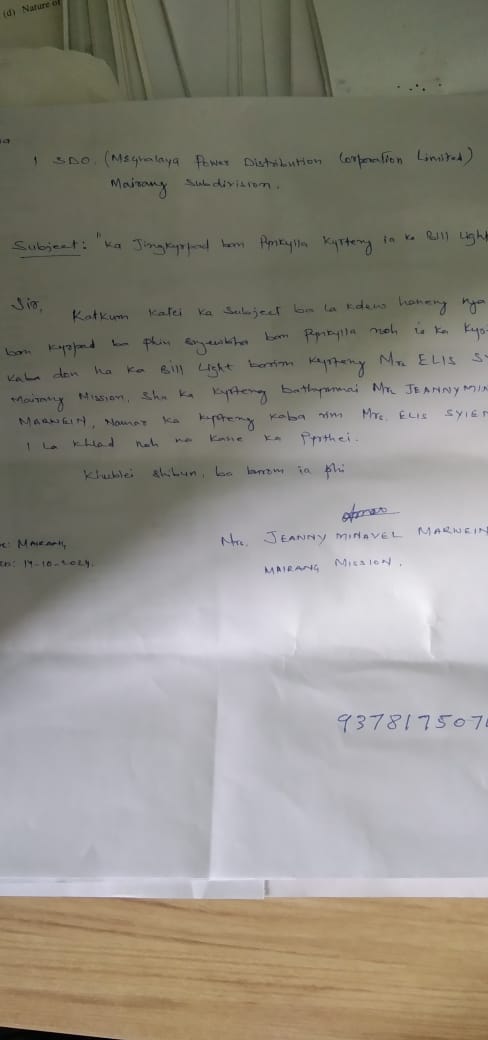 (d) Nature of
I SDO. (Meghalaya Power Distribution Corporation Limited)
Mairang Subdivision.
Subject: "Ka Jingkyrpad ban Pynkylla Kyrteng ia ka Bill Light
Sir,
Katkum katei ka Subject ba la kdew haneng nga
ban kyrpad ba phin ban Pynkylla noh ia ka Kyr-
kaba don ha ka Bill Light Kyrteng Mrs ELIS SY
Mairang Mission, sha ka kyrteng bathymmai Mrs JEANNY MIN
MARWEIN, Namar ka kyrteng kaba Mrs. ELIS SYIEM
I la khlad noh na kane ka Pyrthei.
Khublei shibun, ba ia phi
Mrs. JEANNY MINAVEL MARWEIN
MAIRANG MISSION.
e: MAIRANG,
14-10-2024.
937817507